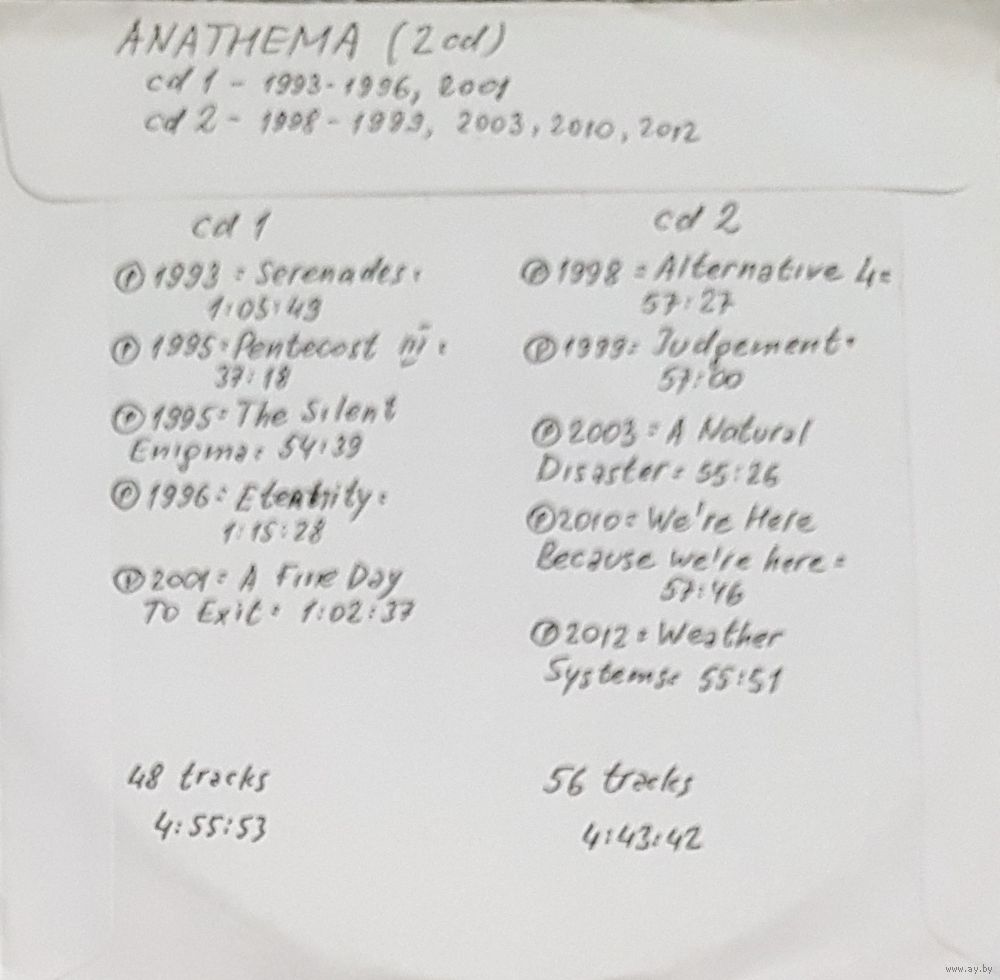 ANATHEMA (2cd)
cd 1 - 1993-1996, 2001
cd 2 - 1998-1999, 2003, 2010, 2012
cd 1
Ⓟ 1993: Serenades:
1:05:49
Ⓟ 1995: Pentecost III:
37:18
Ⓟ 1995: The Silent
Enigma: 54:39
Ⓟ 1996: Eternity:
1:15:28
Ⓟ 2001: A Fine Day
To Exit: 1:02:37
48 tracks
4:55:53
cd 2
Ⓟ 1998: Alternative 4:
57:27
Ⓟ 1999: Judgement:
57:00
Ⓟ 2003: A Natural
Disaster: 55:26
Ⓟ 2010: We're Here
Because we're here:
57:46
Ⓟ 2012: Weather
Systems: 55:51
56 tracks
4:43:42
www.ay.by